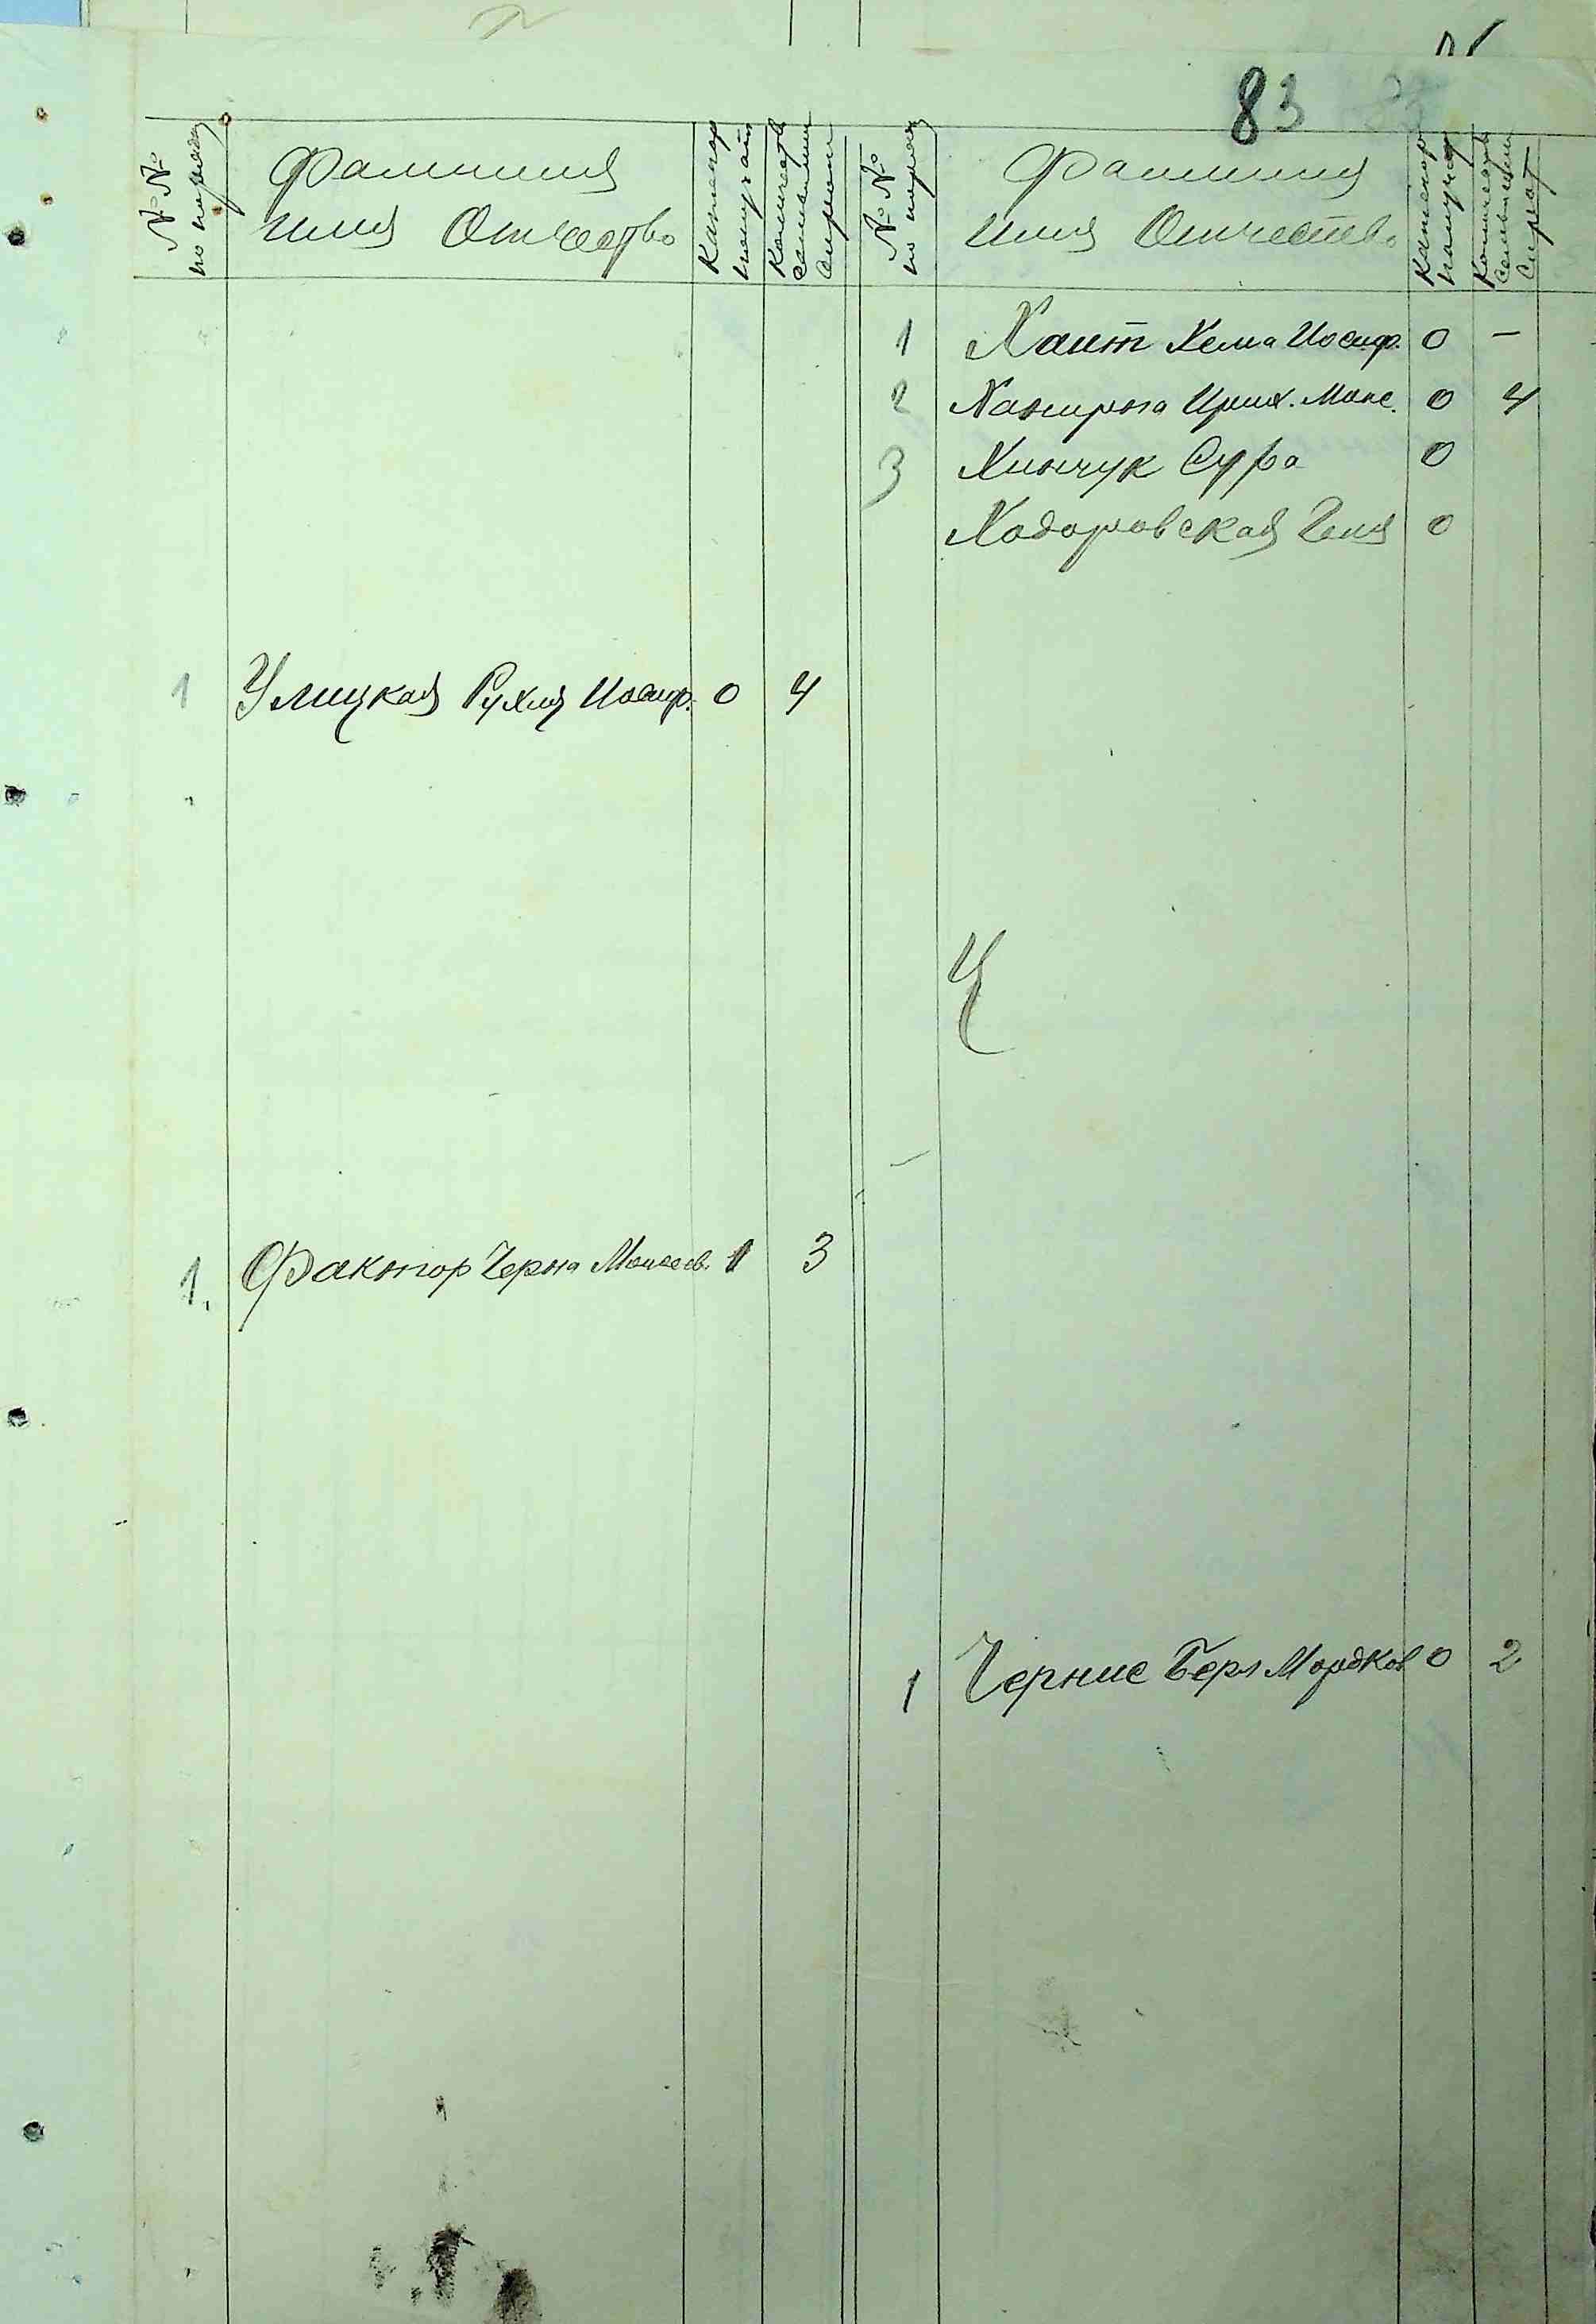 83
№№ по порядку
Фамилия
имя Отчество
Категор получат
Количеств
№№ по порядку
Фамилия
имя Отчество
Категор получат
Количеств
Сирот
1 Хаит Хема Иосиф. 0 —
2 0 4
3 Хинчук Сура 0
Ходоровская Геня 0
1 Улицкая Рухля Иосиф. 0 4
Ц
1. Фактор Черна Моисеев. 1 3
1 Чернис Берл Мордков 0 2